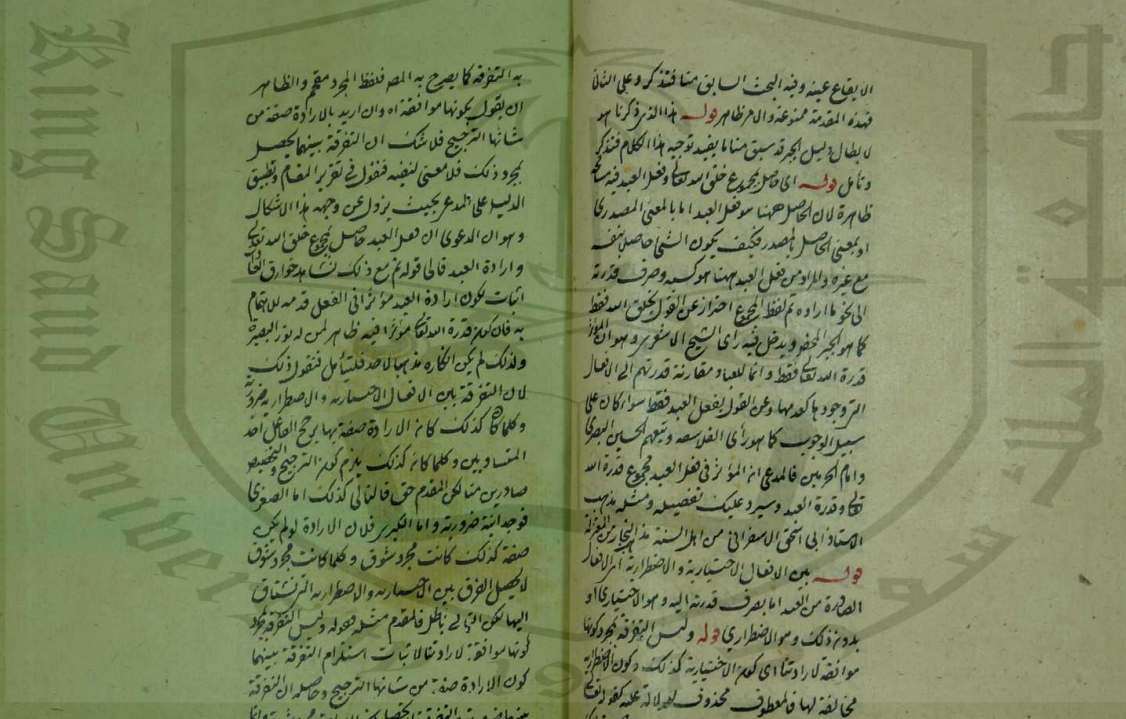 الايقاع عينه وفيه البحث السابق منا فتذكر وعلى الثانى
فهذه المقدمة ممنوعة والامر ظاهر قوله هذا الذى ذكرنا هو
لابطال دليل الجبر قد سبق منا ما يفيد توجيه هذا الكلام فتذكر
وتأمل قوله اى حاصل بمجموع خلق الله تعالى وفعل العبد فيه مسامحة
ظاهرة لان الحاصل ههنا هو فعل العبد اما بالمعنى المصدرى
او بمعنى الحاصل بالمصدر فكيف يكون الشئ حاصلا بنفسه
مع غيره والمراد من فعل العبد ههنا هو كسبه وصرف قدرته
الى نحو ما اراده ثم لفظ المجموع احتراز عن القول بخلق الله فقط
كما هو الجبر المحض ويدخل فيه رأى الشيخ الاشعرى وهو ان المؤثر
قدرة الله تعالى فقط وانما للعباد مقارنة قدرتهم الى الافعال
التى وجودها كعدمها وعن القول بفعل العبد فقط سواء كان على
سبيل الوجوب كما هو رأى الفلاسفه وتبعهم الحسين البصرى
وامام الحرمين فالمدعى انه المؤثر فى فعل العبد مجموع قدرة الله
تعالى وقدرة العبد وسيرد عليك تفصيله ومثله مذهب
الاستاذ ابى اسحق الاسفرائنى من اهل السنة النجار من المعتزلة
قوله بين الافعال الاختيارية والاضطرارية اى الافعال
الصادرة من العبد اما بصرف قدرته اليه وهو الاختيارى او
بدون ذلك وهو الاضطرارى قوله وليس التفرقة بمجرد كونها
موافقة لارادتنا اى كون الاختيارية كذلك وكون الاضطرارية
مخالفة لها فالمعطوف محذوف لدلالة عليه كقوله تعالى
به التفرقة كما يصرح به المص فلفظ المجرد مقحم والظاهر
ان يقول بكونها موافقة اه وان اريد بالارادة صفة من
شأنها الترجيح فلا شك ان التفرقة بينهما يحصل
بمجرد ذلك فلا معنى لنفيه فنقول فى تقرير المقام وتطبيق
الدليل على المدعى بحيث يزول عن وجهه هذا الاشكال
وهو ان الدعوى ان فعل العبد حاصل بمجموع خلق الله تعالى
وارادة العبد فالى قوله ثم مع ذلك نشاهد خوارق العادات
اثبات لكون ارادة العبد مؤثرا فى الفعل قدمه للاهتمام
به فان كون قدرة الله تعالى مؤثرا فيه ظاهر لمن له نور البصيرة
ولذلك لم يكن انكاره مذهبا لاحد فليتأمل فنقول ذلك
لان التفرقة بين الافعال الاختيارية والاضطرارية ضرورية
وكلما كان كذلك كان الارادة صفة بها يرجح الفاعل احد
المتساويين وكلما كان كذلك يلزم كون الترجيح والتخصيص
صادرين منا لكن المقدم حق فالتالى كذلك اما الصغرى
فوجدانية ضرورية واما الكبرى فلان الارادة لو لم يكن
صفة كذلك كانت مجرد شوق وكلما كانت مجرد شوق
لا يحصل الفرق بين الاختيارية والاضطرارية التى نشتاق
اليها لكن التالى باطل فالمقدم مثله فقوله وليس التفرقة بمجرد
كونها موافقة لارادتنا لاثبات استلزام التفرقة بينهما
كون الارادة صفة من شأنها الترجيح وحاصله ان التفرقة
King Saud University
جامعة الملك سعود